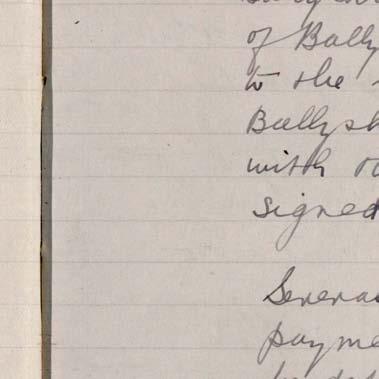 of Bally
to the
Ballysh
with
signed
Severa
payme